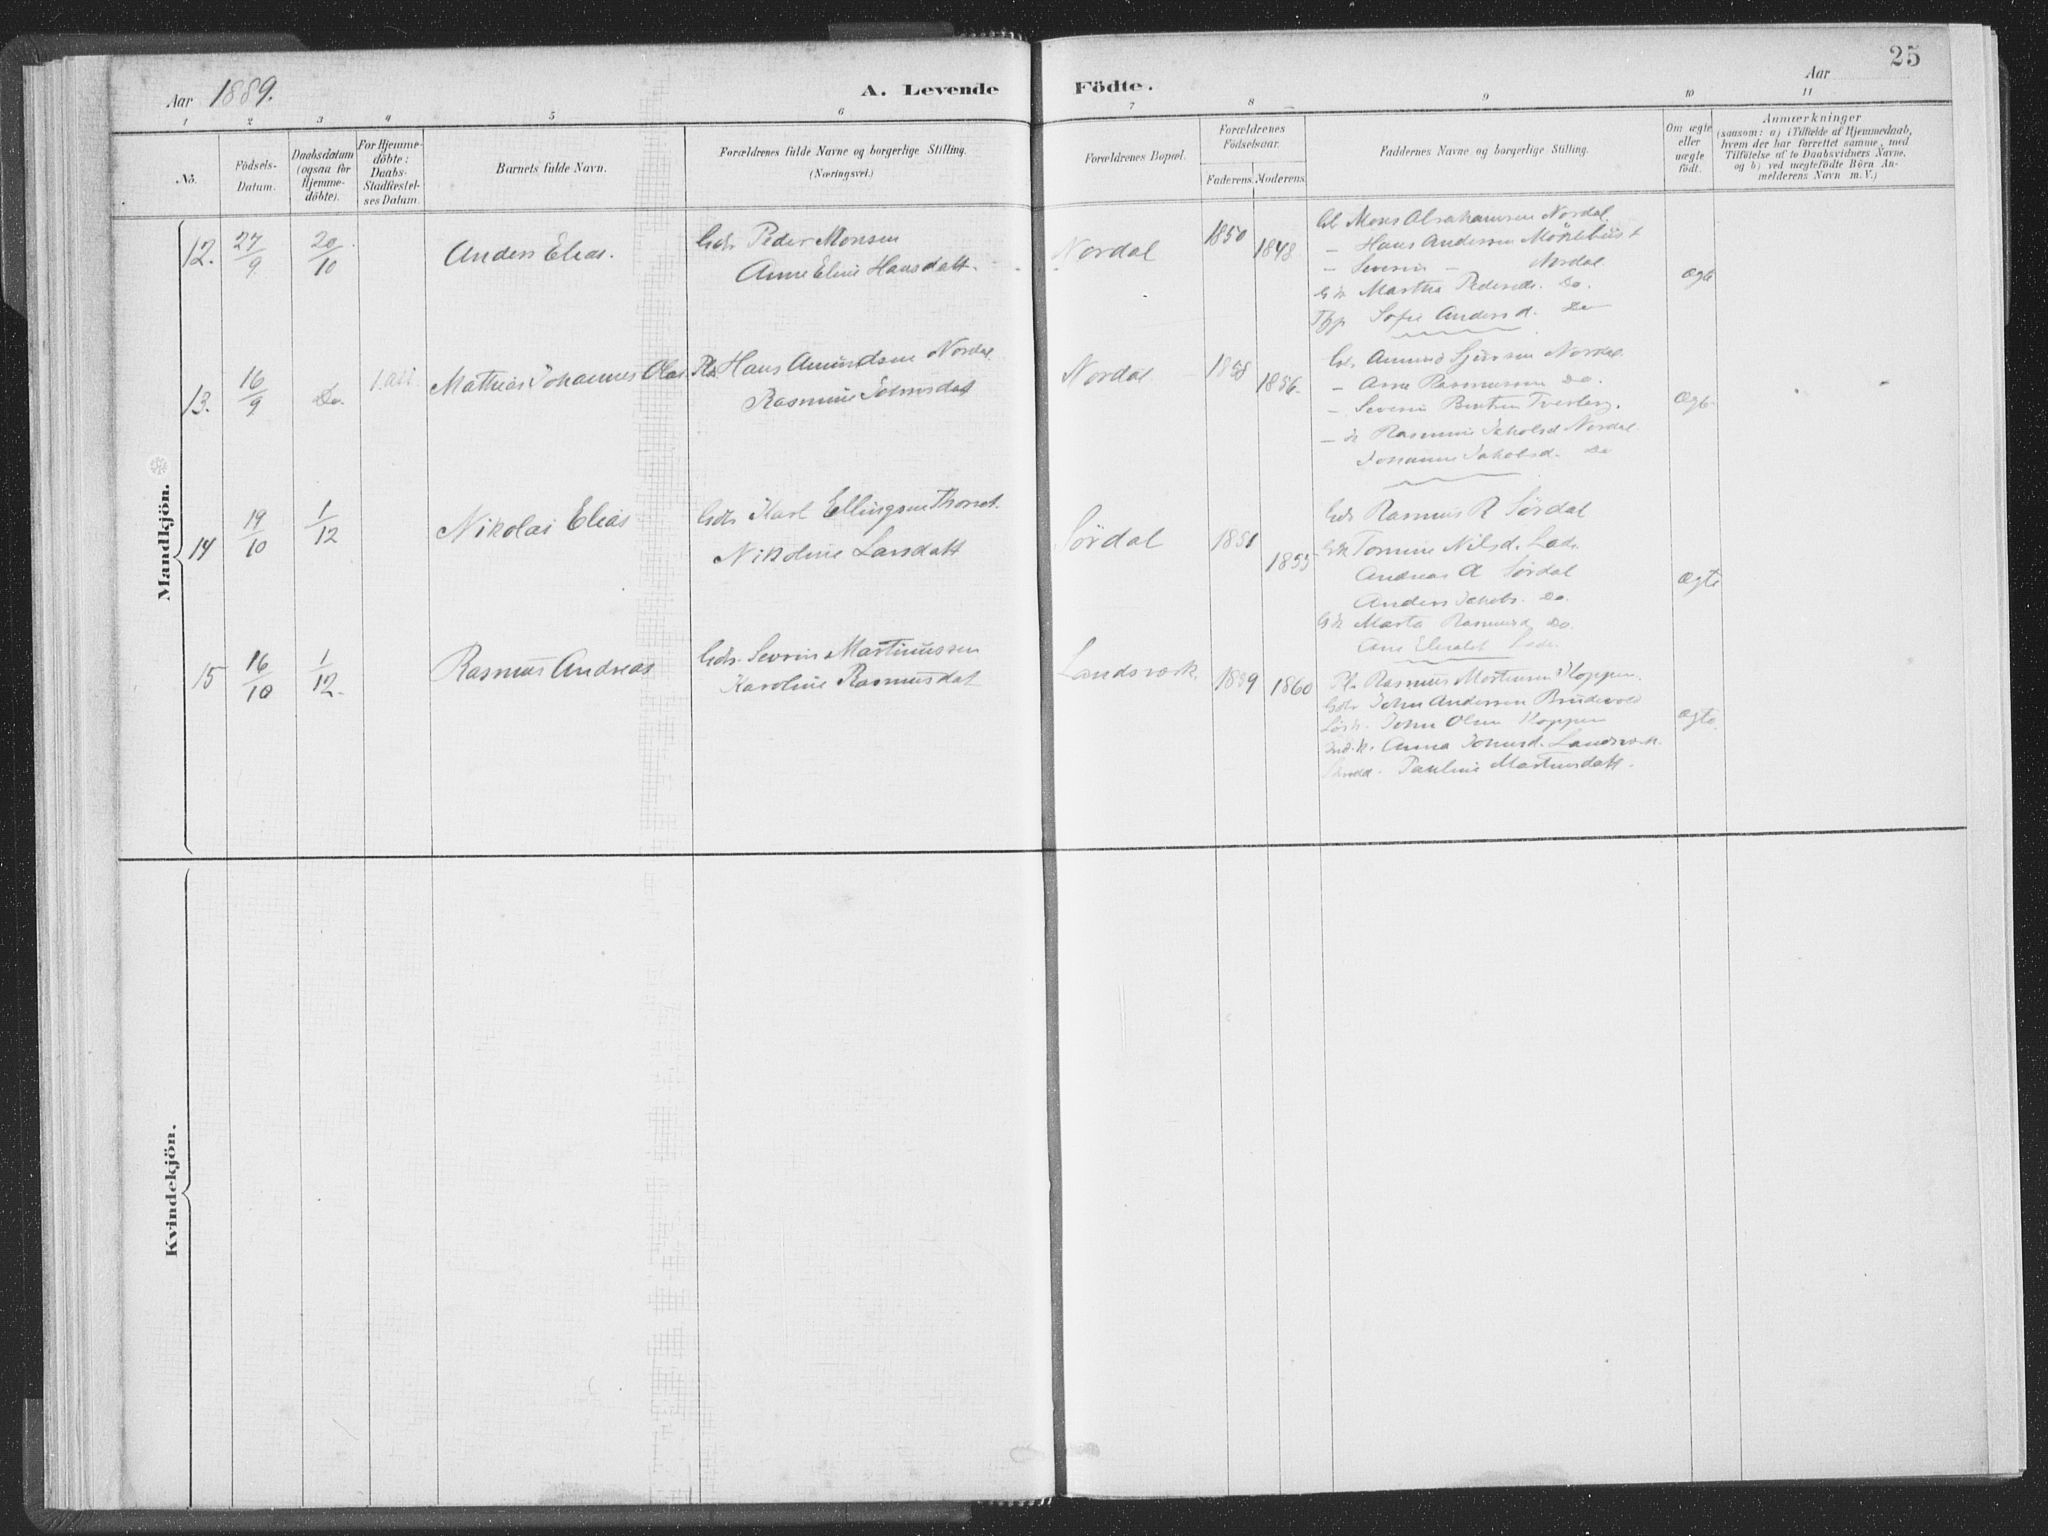 Aar 1889.
A. Levende Födte.
Aar
25
1 2 3 4 5 6 7 8 9 10 11
No.
Födsels-Datum.
Daabsdatum (ogsaa för Hjemme-döbte).
For Hjemme-döbte: Daabs-Stadfæstel-ses Datum.
Barnets fulde Navn.
Forældrenes fulde Navne og borgerlige Stilling. (Næringsvei.)
Forældrenes Bopæl.
Forældrenes Födselsaar.
Faderens. Moderens.
Faddernes Navne og borgerlige Stilling.
Om ægte eller uægte födt.
Anmærkninger
(saasom: a) i Tilfælde af Hjemmedaab,
hvem der har forrettet samme, med
Tilföielse af to Daabsvidners Navne,
og b) ved uægtefödte Börn An-
melderens Navn m.V.)
Mandkjön.
12. 27/9 20/10 Anders Elias. Gdr Peder Monsen
Anne Eline Hansdatt.
Nordal 1850 1848
Mons Abrahamsen Nordal
– Hans Andersen
– Severin – Nordal
Martha Pedersd. Do.
Sofie Andersd. Do
Ægte
13. 16/9 Do. Mathias Johannes Olai Pl. Hans Amundsen Nordal
Rasmine Johnsdatt
Nordal 1858 1856.
Amund Sjursen Nordal
– Arne Rasmussen Do.
– Severin Bentsen Tverberg.
– Rasmine Jakobsd Nordal
Johanne Jakobsd. Do
Ægte
14 19/10 1/12 Nikolai Elias Gdr Karl Ellingsen
Nikoline Larsdatt
Sördal 1851 1855
Gdr Rasmus R Sørdal
Nilsd.
Andreas A Sørdal
Anders Jakobs. Do.
Marta Rasmusd Do.
Ægte
15 16/10 1/12. Rasmus Andreas Gdr. Severin Martinussen
Karoline Rasmusdat
Landsværk. 1859 1860
Pl. Rasmus Mortensen Koppen.
Gdr John Andersen Brudevold
John Olsen Koppen
Anna Johnsd. Landsværk.
Pauline Martinusdatt.
Ægte
Kvindekjön.